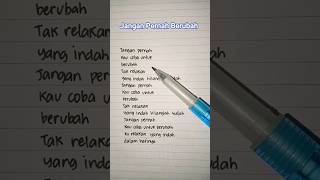 Jangan Pernah Berubah
berubah
Tak relakan
yang indah
Jangan pernah
kau coba untuk
berubah
Tak relakan
yang indah
Jangan pernah
Kau coba untuk
berubah
Tak relakan
yang indah hilanglah sudah
Jangan pernah
kau coba untuk berubah
ku relakan yang indah
dalam hatinya
Jangan pernah
kau coba untuk
berubah
Tak relakan
yang indah
dalam hatinya